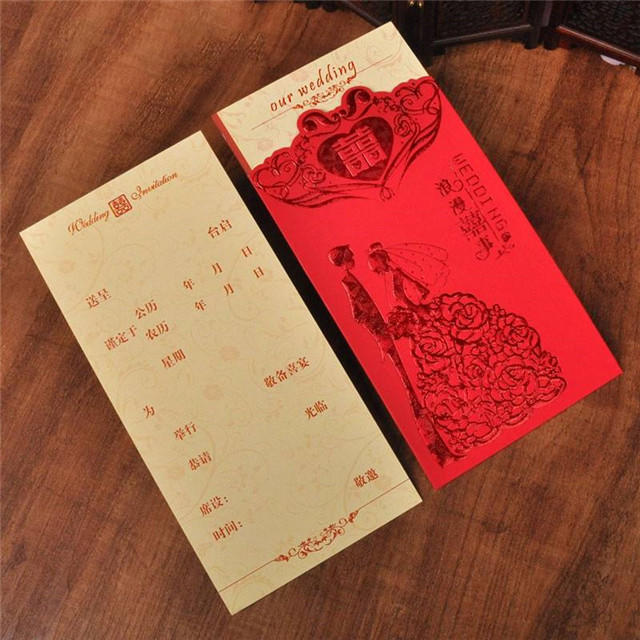 Wedding 囍 Invitation
台启
送呈
公历 年 月 日
谨定于 农历 年 月 日
星期
为 敬备喜宴
举行 光临
恭请
席设： 敬邀
时间：
our wedding
囍
WEDDING
浪漫囍事